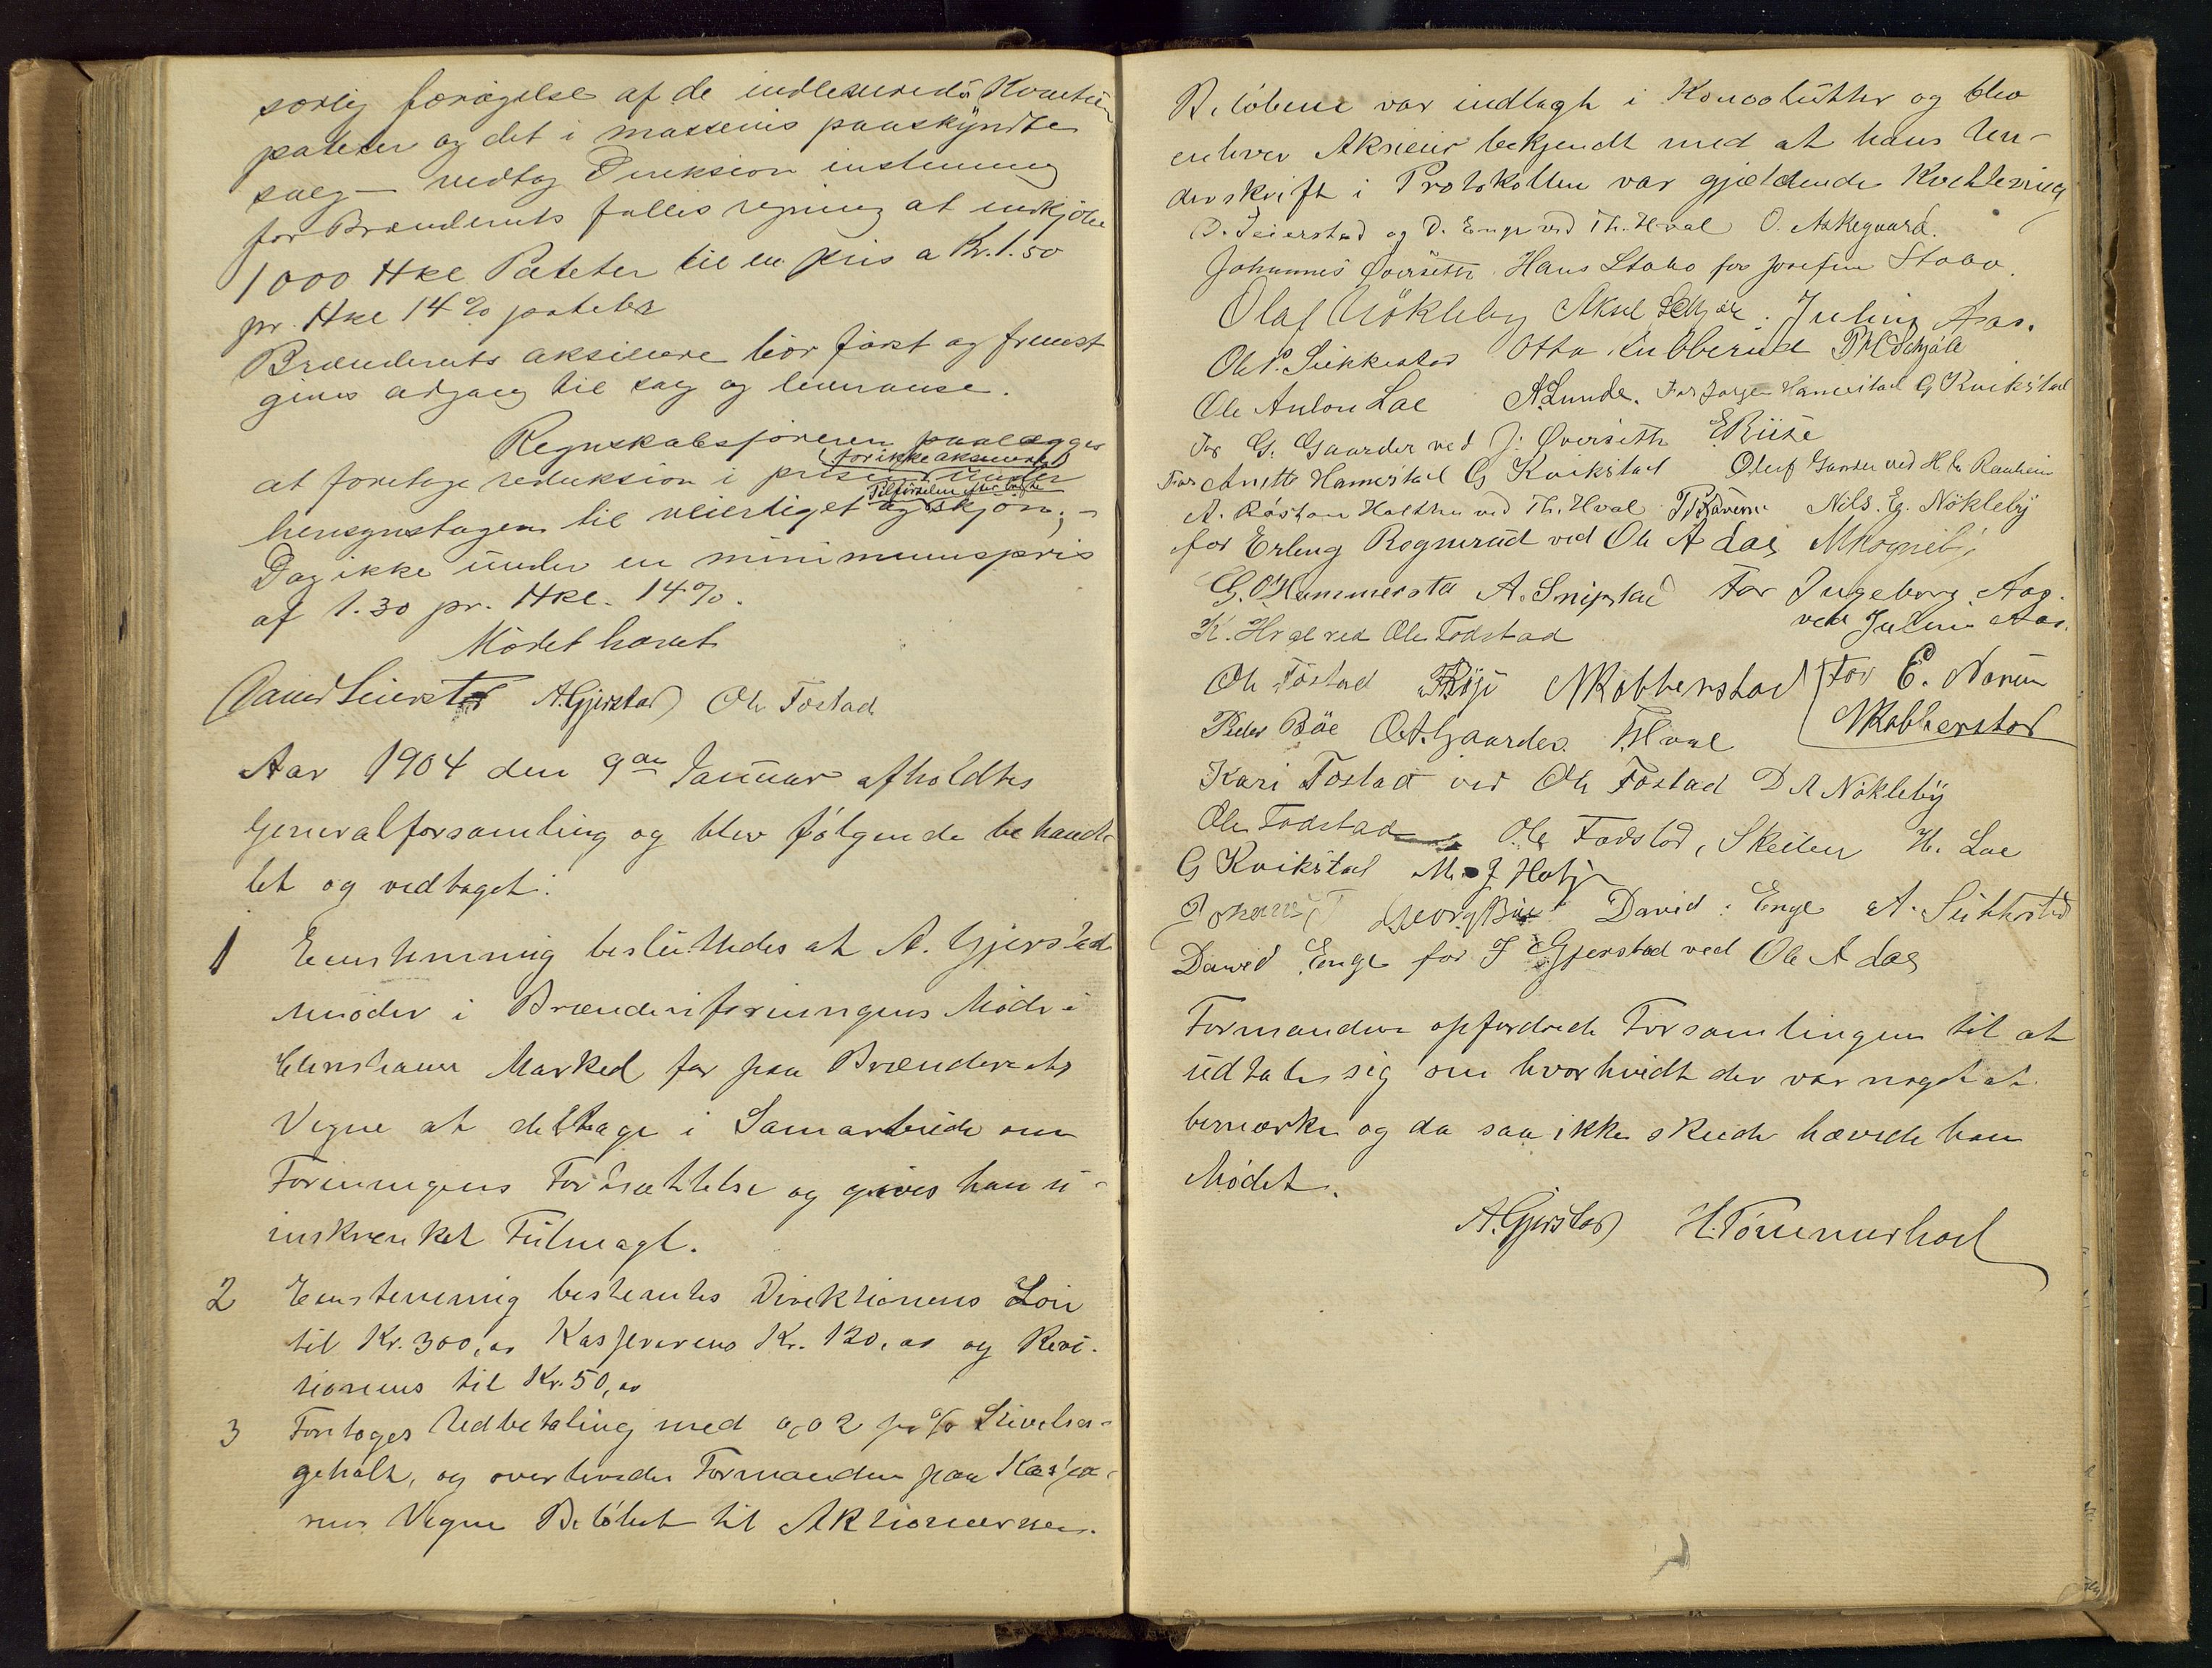 sorlig forøgelse af de indleverede Kvantum
poteter og det i massevis paaskyndte
salg — vedtog Direksion enstemmig
for Brænderiets fælles regning at indkjøbe
1000 Hkl Poteter til en pris a Kr. 1.50
pr. Hkl 14% poteter
Brænderiets aksieiere bør først og fremst
gives adgang til salg og leveranse.
Regnskabsføreren paalægges
(for ikke aksieiere)
at foretage reduksion i prisen under
Tilførselen efter
hensynstagen til veierliget og skjøn; -
Dog ikke under en minimumspris
af 1.30 pr. Hkl. 14%.
Mødet hævet
A. Gjerstad Ole Fostad
Aar 1904 den 9de Januar afholdtes
Generalforsamling og blev følgende behand-
let og vedtaget:
1 Eenstemmig besluttedes at A. Gjerstad
møder i Brænderiforeningens Møde i
Christiania Marked for paa Brænderiets
Vegne at deltage i Samarbeide om
Foreningens Fortsættelse og gives han u-
inskrenket Fuldmagt.
2 Eenstemmig bestemtes Direktionens Løn
til Kr. 300,00 Kassererens Kr. 120,00 og Revi-
sionens til Kr. 50,00
3 Foretoges Udbetaling med 0,02 pr % Stivelses-
gehalt, og overleverede Formanden paa Kasse-
rens Vegne Beløbet til Aktionærerne.
Beløbene var indlagt i Konvolutter og blev
enhver Aksieier bekjendt med at hans Un-
derskrift i Protokollen var gjældende Kvittering
D. Seierstad og D. Enge ved Th. Hval O. Askegaard.
Johannes Øverseth Hans Stabo for Josefine Stabo.
Olaf Nökleby Aksel Schjøll. Julius Aas.
Ole P. Sukkestad Otto Kubberud P. M. Schjöll
Ole Anton Lae A. Lunde. For Jørgen Hamerstad G Kvikstad
For G. Gaarder ved J. Øverseth E. Riise
For Anette Hamerstad G Kvikstad Oluf Gaarder ved H.
A. Røstøen Holthe ved Th. Hval Nils. Eg. Nökleby
for Erling Rognerud ved Ole A Lae
G. O. Hammersta A. Snipstad For Ingeborg Aas.
ved Julius Aas.
K. Hval ved Ole Fodstad
Ole Fostad N Kobberstad For E. Norum
N Kobberstad
Peder Böe O. A. Gaarder. T. Hval
Kari Fostad ved Ole Fostad D A Nökleby
Ole Fodstad Ole Fodstad, Skeilen H. Lae
G Kvikstad M. J
Georg David Enge A. Sukkestad
David Enge for J Gjerstad ved Ole A Lae
Formanden opfordrede Forsamlingen til at
udtale sig om hvorhvidt der var noget at
bemærke og da saa ikke skede hævede han
Mødet.
A. Gjerstad H. Tömmerhol